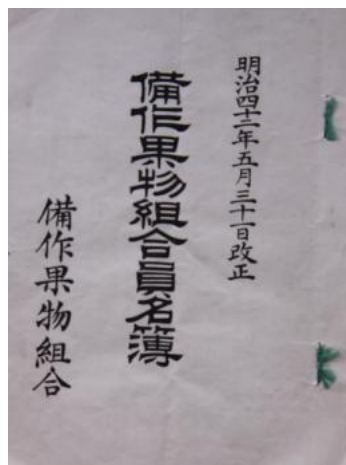 明治四十二年五月三十一日改正
備作果物組合員名簿
備作果物組合